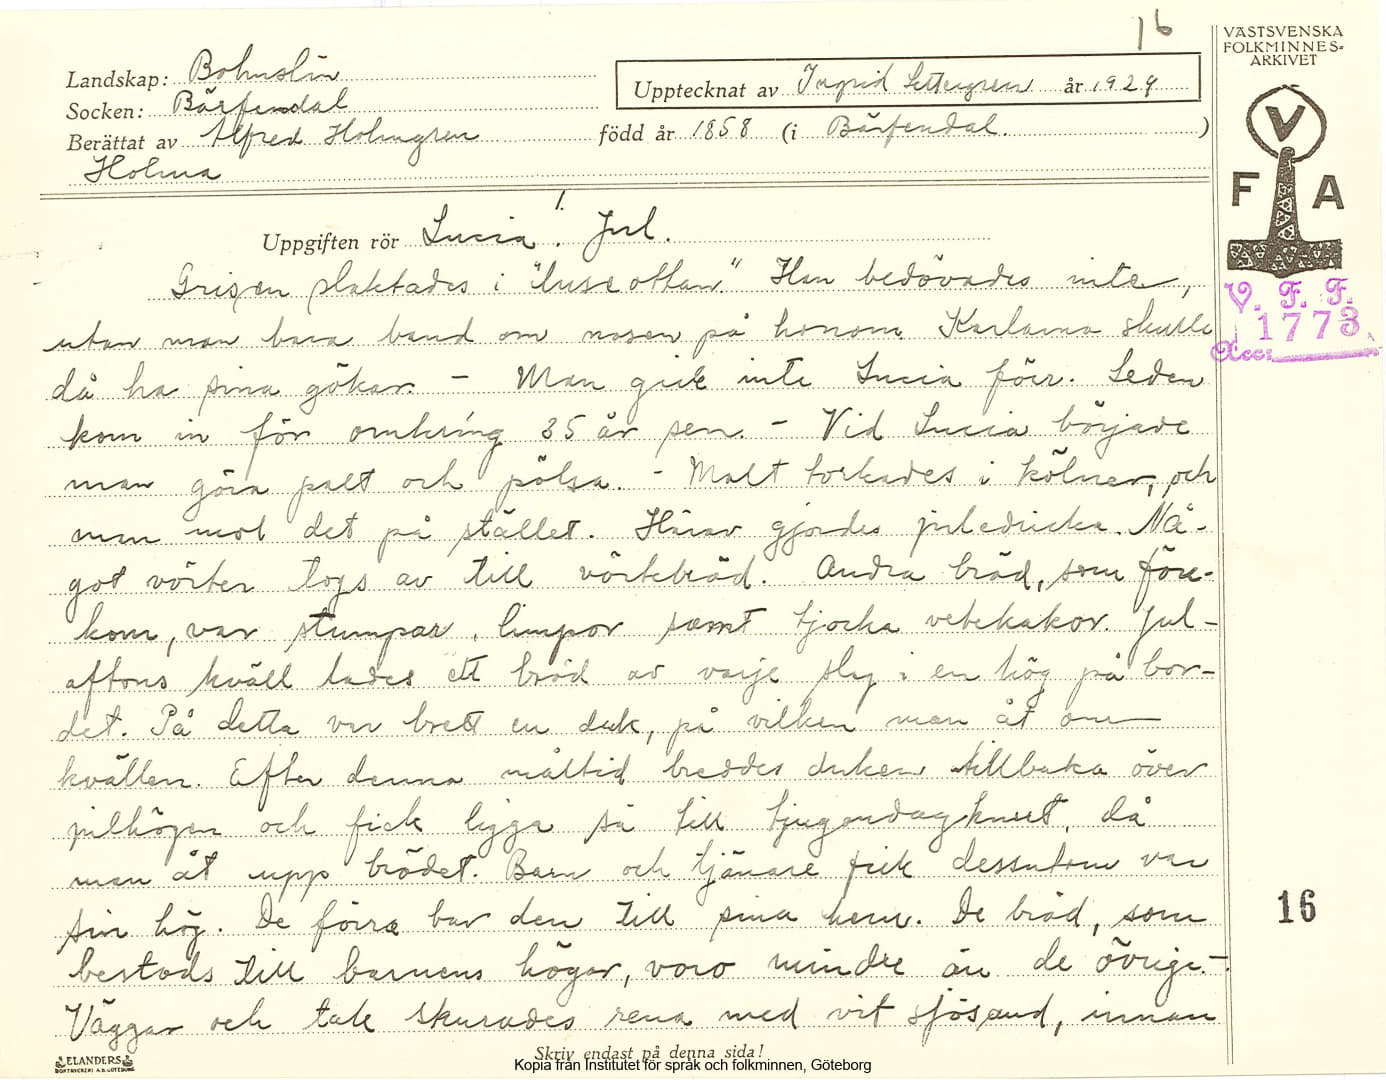 16
VÄSTSVENSKA
FOLKMINNES-
ARKIVET
Landskap: Bohuslän
Upptecknat av Ingrid Settergren år 1929
Socken: Bärfendal
Berättat av Alfred Holmgren född år 1858 (i Bärfendal.)
Holma
V
F A
1.
Uppgiften rör Lucia. Jul.
V. F. F.
1773
Acc:
Grisen slaktades i "luseottan". Han bedövades inte,
utan man bara band om nosen på honom. Karlarna skulle
då ha sina gökar. – Man gick inte Lucia förr. Seden
kom in för omkring 35 år sen. – Vid Lucia började
man göra palt och pölsa. – Malt torkades i kölner, och
man mol det på stället. Härav gjordes juledricka. Nå-
got vörten togs av till vörtebröd. Andra bröd, som före-
kom, var stumpar, limpor samt tjocka vetekakor. Jul-
aftons kväll lades ett bröd av varje slag i en hög på bor-
det. På detta var brett en duk, på vilken man åt om
kvällen. Efter denna måltid breddes duken tillbaka över
julhögen och fick ligga så till tjugondagknut, då
man åt upp brödet. Barn och tjänare fick dessutom var
sin hög. De förra bar den till sina hem. De bröd, som
bestods till barnens högar, voro mindre än de övriga. –
Väggar och tak skurades rena med vit sjösand, innan
16
ELANDERS
BOKTRYCKERI A.B. GÖTEBORG
Skriv endast på denna sida!
Kopia från Institutet för språk och folkminnen, Göteborg